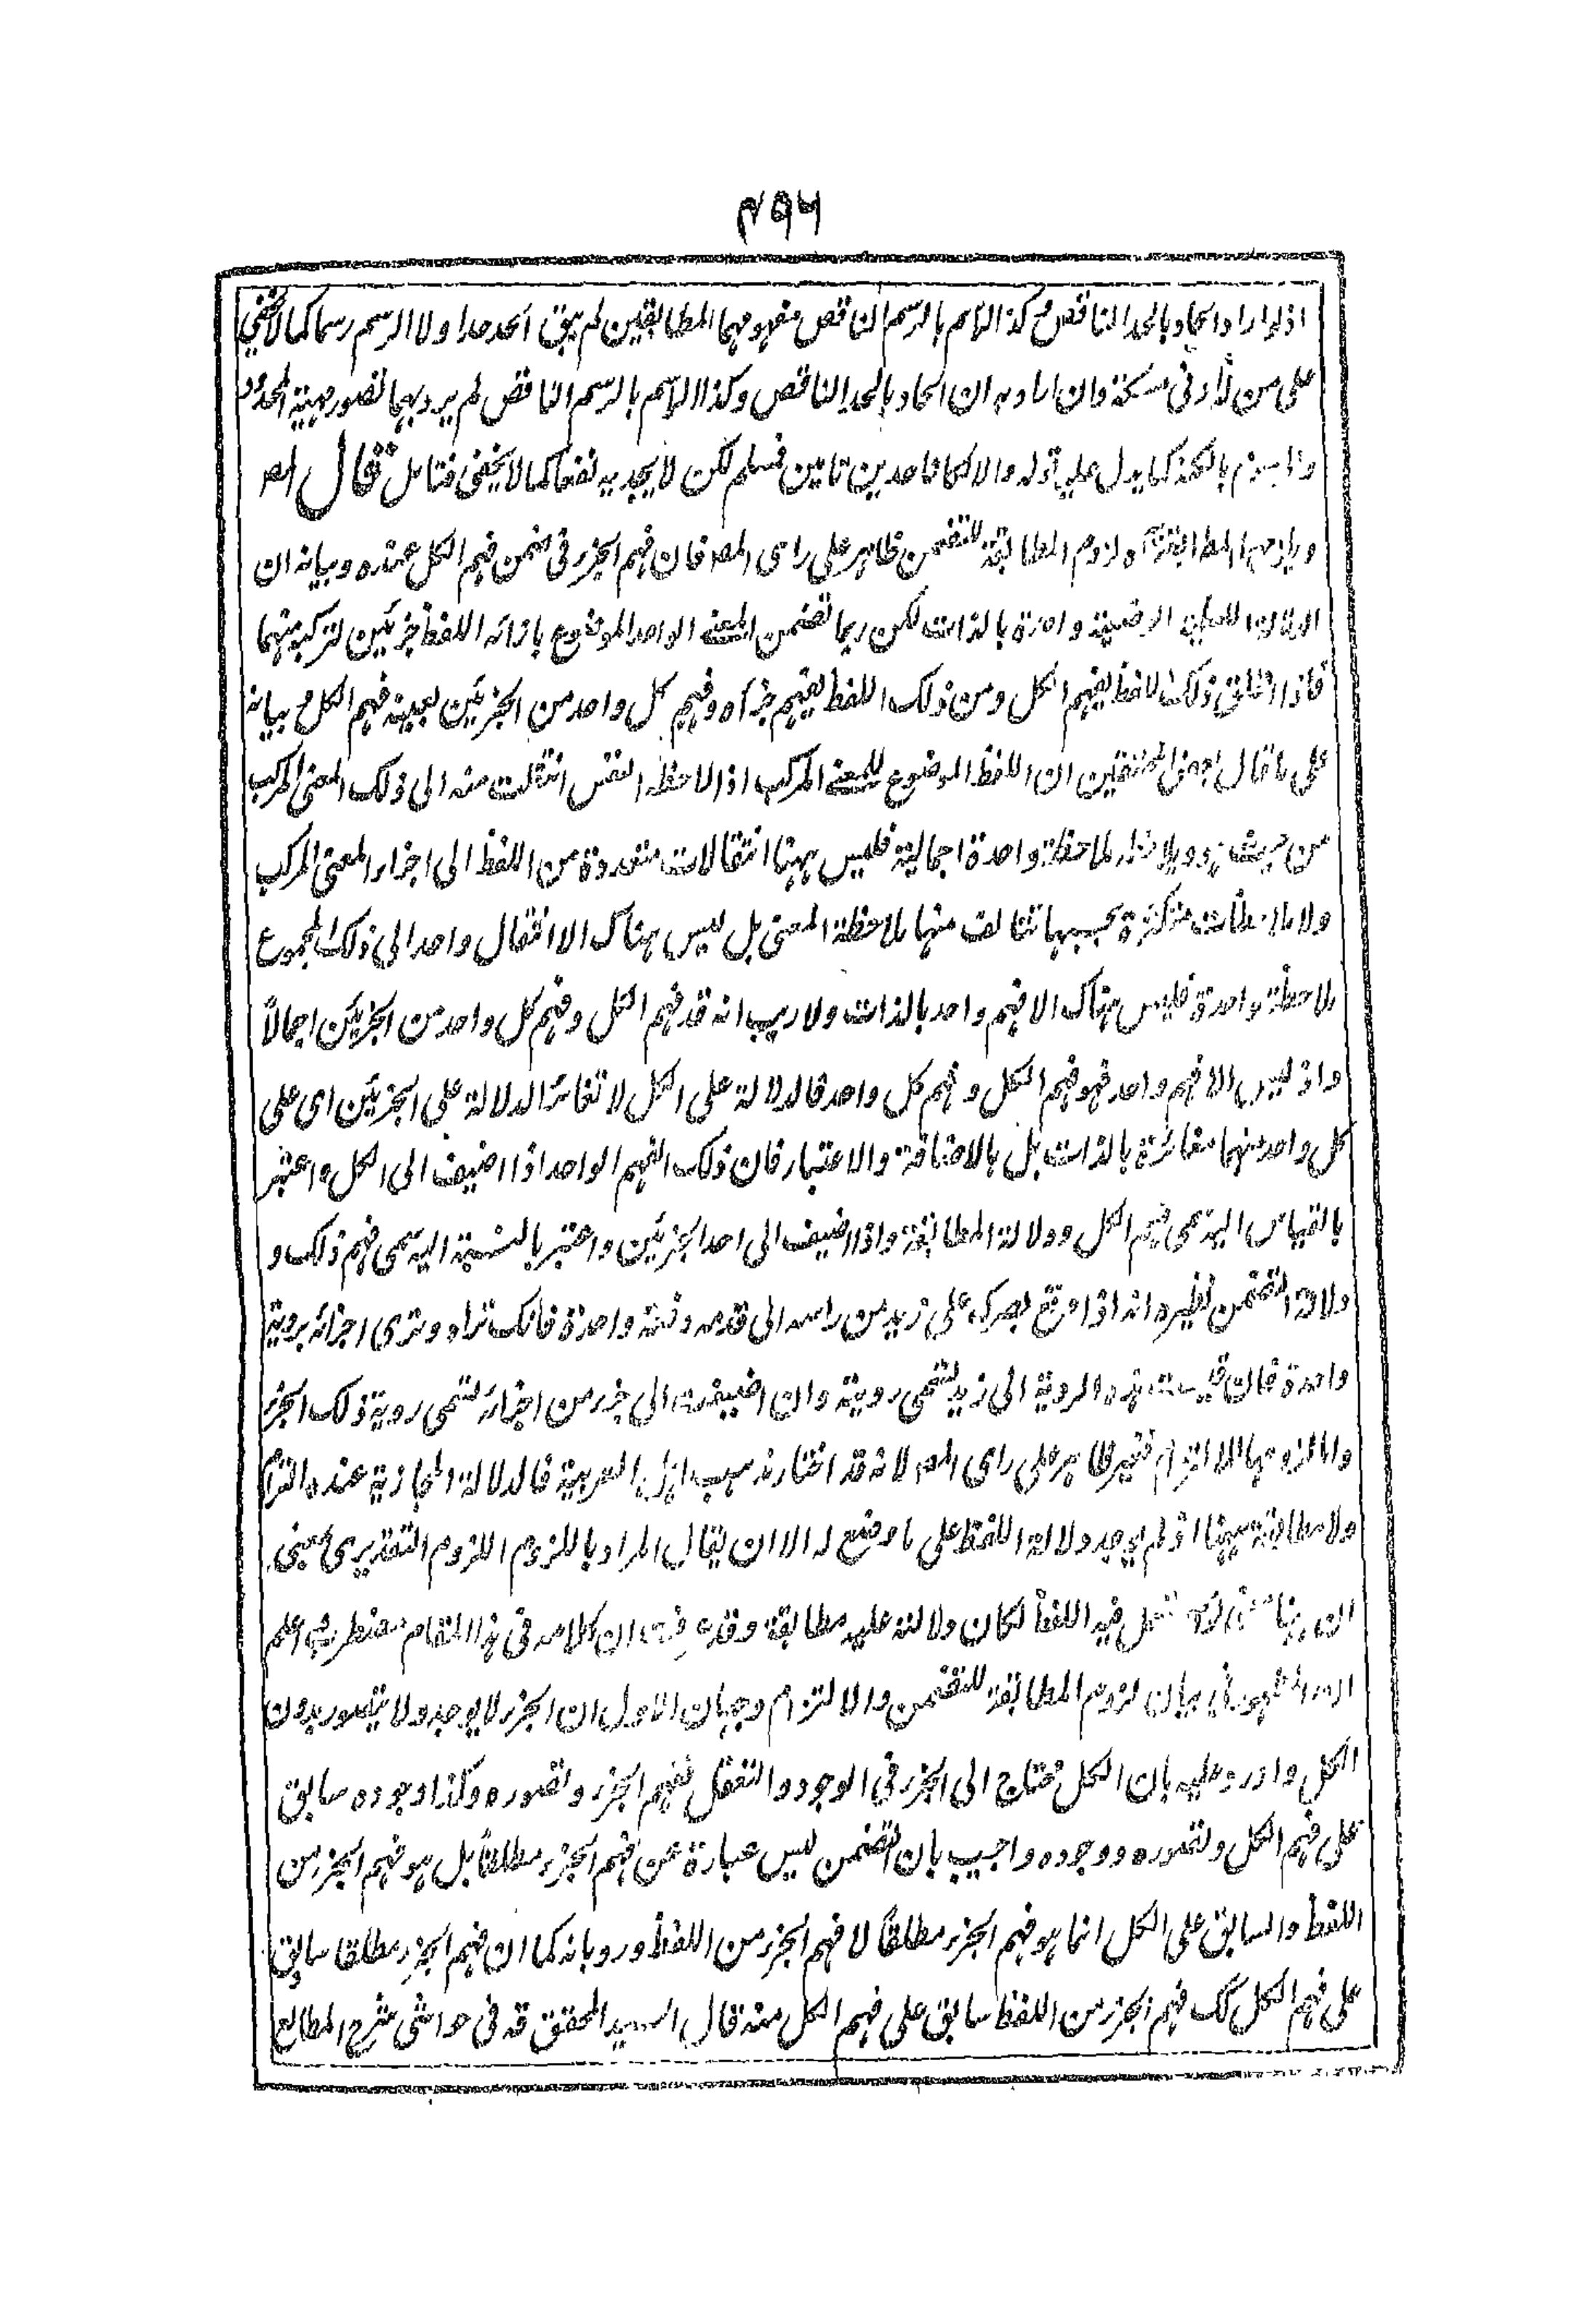 ۴۹۶
اذ لو اراد الحاد بالحد الناقص وكذا الراسم بالرسم الناقص مفهومهما المطابقين لم يبق الحد حدا ولا الرسم رسما كما لا يخفى
على من له ادنى مسكة وان اراد به ان الحاد بالحد الناقص وكذا الراسم بالرسم الناقص لم يرد بهما تصور مهية المحدود
والمرسوم بالكنه كما يدل عليه قوله والا لكانا حدين تامين فمسلم لكن لا يجديه نفعا كما لا يخفى فتامل قال المصـ
ويلزمهما المطابقة آه لزوم المطابقة للتضمن ظاهر على راى المصـ فان فهم الجزء فى ضمن فهم الكل عنده وبيانه ان
الدلالة اللفظية الوضعية واحدة بالذات لكن ربما تضمن المعنى الواحد الموضوع بازائه اللفظ جزئين لتركبه منهما
فاذا اطلق ذلك اللفظ يفهم الكل ومن ذلك اللفظ يفهم جزاه وفهم كل واحد من الجزئين بعينه فهم الكل وبيانه
على ما قال بعض المحققين ان اللفظ الموضوع للمعنى المركب اذا لاحظه النفس انتقلت منه الى ذلك المعنى المركب
من حيث هو ويلاحظه بملاحظة واحدة اجمالية فليس ههنا انتقالات متعددة من اللفظ الى اجزاء المعنى المركب
ولا ملاحظات متكثرة بحسبها تتالف منها ملاحظة المعنى بل ليس هناك الا انتقال واحد الى ذلك المجموع
بملاحظة واحدة فليس هناك الا فهم واحد بالذات ولا ريب انه قد فهم الكل وفهم كل واحد من الجزئين اجمالاً
واذ ليس الا فهم واحد فهو فهم الكل وفهم كل واحد فالدلالة على الكل لا تغائر الدلالة على الجزئين اى على
كل واحد منهما مغائرة بالذات بل بالاضافة والاعتبار فان ذلك الفهم الواحد اذا اضيف الى الكل واعتبر
بالقياس اليه سمى فهم الكل ودلالة المطابقة واذا اضيف الى احد الجزئين واعتبر بالنسبة اليه سمى فهم ذلك و
دلالة التضمن نظيره انه اذا وقع بصرك على زيد من راسه الى قدمه دفعة واحدة فانك تراه وترى اجزائه بروية
واحدة فان قيست هذه الروية الى زيد لتسمى روية وان اضيفت الى جزء من اجزائه لتسمى روية ذلك الجزء
واما لزومها للالتزام فغير ظاهر على راى المصـ لانه قد اختار مذهب اهل العربية فالدلالة المجازية عنده التزام
ولا مطابقة ههنا اذ لم يوجد دلالة اللفظ على ما وضع له الا ان يقال المراد باللزوم اللزوم التقديرى بمعنى
ان ههنا معنى لو استعمل فيه اللفظ لكان دلالته عليه مطابقة وقد عرفت ان كلامه فى هذا المقام مضطرب ثم اعلم
ان المشهور فى بيان لزوم المطابقة للتضمن والالتزام وجهان الاول ان الجزء لا يوجد ولا يتصور بدون
الكل واورد عليه بان الكل محتاج الى الجزء فى الوجود والتعقل ففهم الجزء وتصوره وكذا وجوده سابق
على فهم الكل وتصوره ووجوده واجيب بان التضمن ليس عبارة عن فهم الجزء مطلقاً بل هو فهم الجزء من
اللفظ والسابق على الكل انما هو فهم الجزء مطلقاً لا فهم الجزء من اللفظ ورد بانه كما ان فهم الجزء مطلقا سابق
على فهم الكل كك فهم الجزء من اللفظ سابق على فهم الكل منه قال السيد المحقق قد فى حواشى شرح المطالع